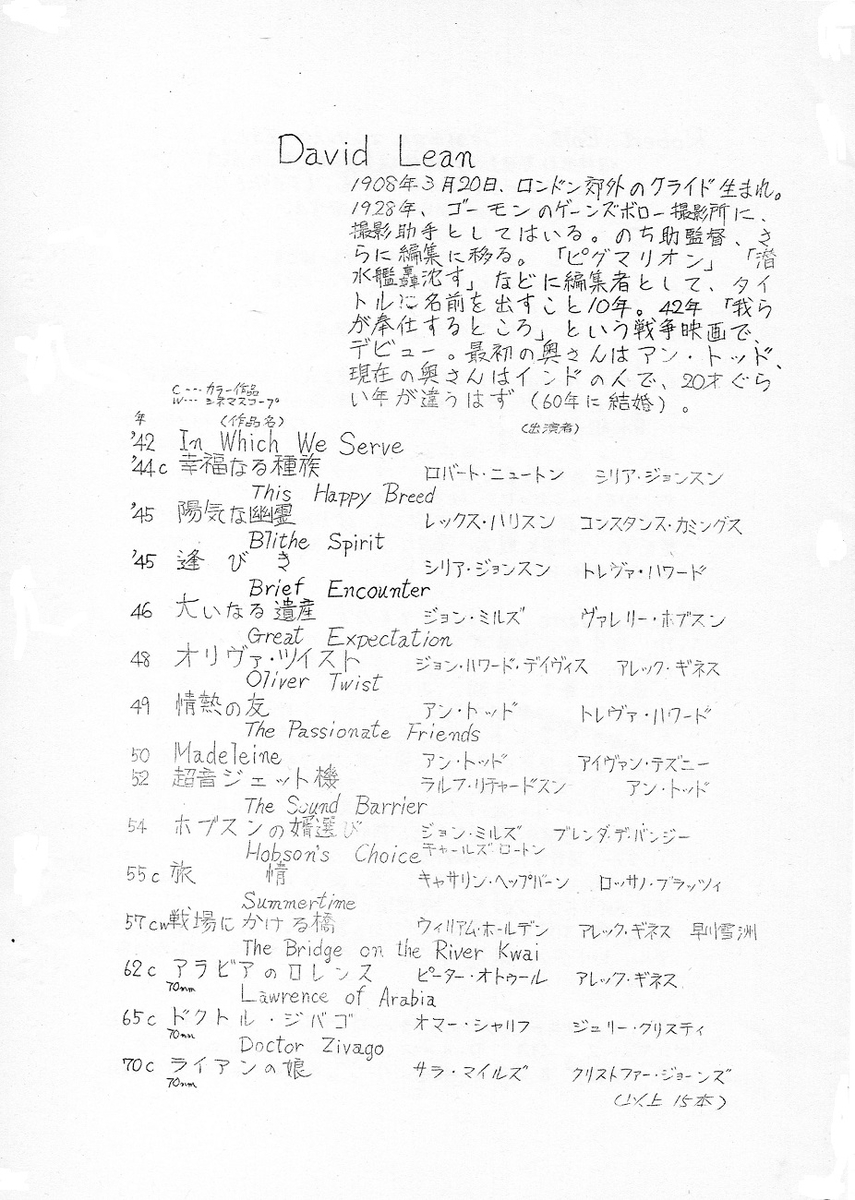 David Lean
1908年3月20日、ロンドン郊外のクライド生まれ。
1928年、ゴーモンのゲーンズボロー撮影所に、
撮影助手としてはいる。のち助監督、さ
らに編集に移る。「ピグマリオン」「潜
水艦轟沈す」などに編集者として、タイ
トルに名前を出すこと10年。42年「我ら
が奉仕するところ」という戦争映画で、
デビュー。最初の奥さんはアン・トッド、
現在の奥さんはインドの人で、20才ぐら
い年が違うはず(60年に結婚)。
C・・・カラー作品
W・・・シネマスコープ
年 (作品名) (出演者)
'42 In Which We Serve
'44c 幸福なる種族 ロバート・ニュートン シリア・ジョンスン
This Happy Breed
'45 陽気な幽霊 レックス・ハリスン コンスタンス・カミングス
Blithe Spirit
'45 逢びき シリア・ジョンスン トレヴァ・ハワード
Brief Encounter
46 大いなる遺産 ジョン・ミルズ ヴァレリー・ホブスン
Great Expectation
48 オリヴァ・ツイスト ジョン・ハワード・デイヴィス アレック・ギネス
Oliver Twist
49 情熱の友 アン・トッド トレヴァ・ハワード
The Passionate Friends
50 Madeleine アン・トッド アイヴァン・デズニー
52 超音ジェット機 ラルフ・リチャードスン アン・トッド
The Sound Barrier
54 ホブスンの婿選び ジョン・ミルズ ブレンダ・デ・バンジー
Hobson's Choice チャールズ・ロートン
55c 旅情 キャサリン・ヘップバーン ロッサノ・ブラッツィ
Summertime
57cw 戦場にかける橋 ウィリアム・ホールデン アレック・ギネス 早川雪洲
The Bridge on the River Kwai
62c アラビアのロレンス ピーター・オトゥール アレック・ギネス
70mm Lawrence of Arabia
65c ドクトル・ジバゴ オマー・シャリフ ジュリー・クリスティ
70mm Doctor Zivago
70c ライアンの娘 サラ・マイルズ クリストファー・ジョーンズ
70mm
(以上15本)